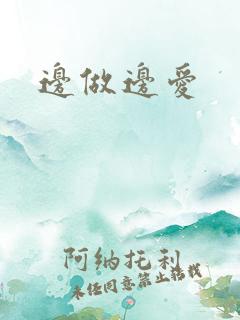 邊做邊愛
阿納托利
未经同意禁止转载